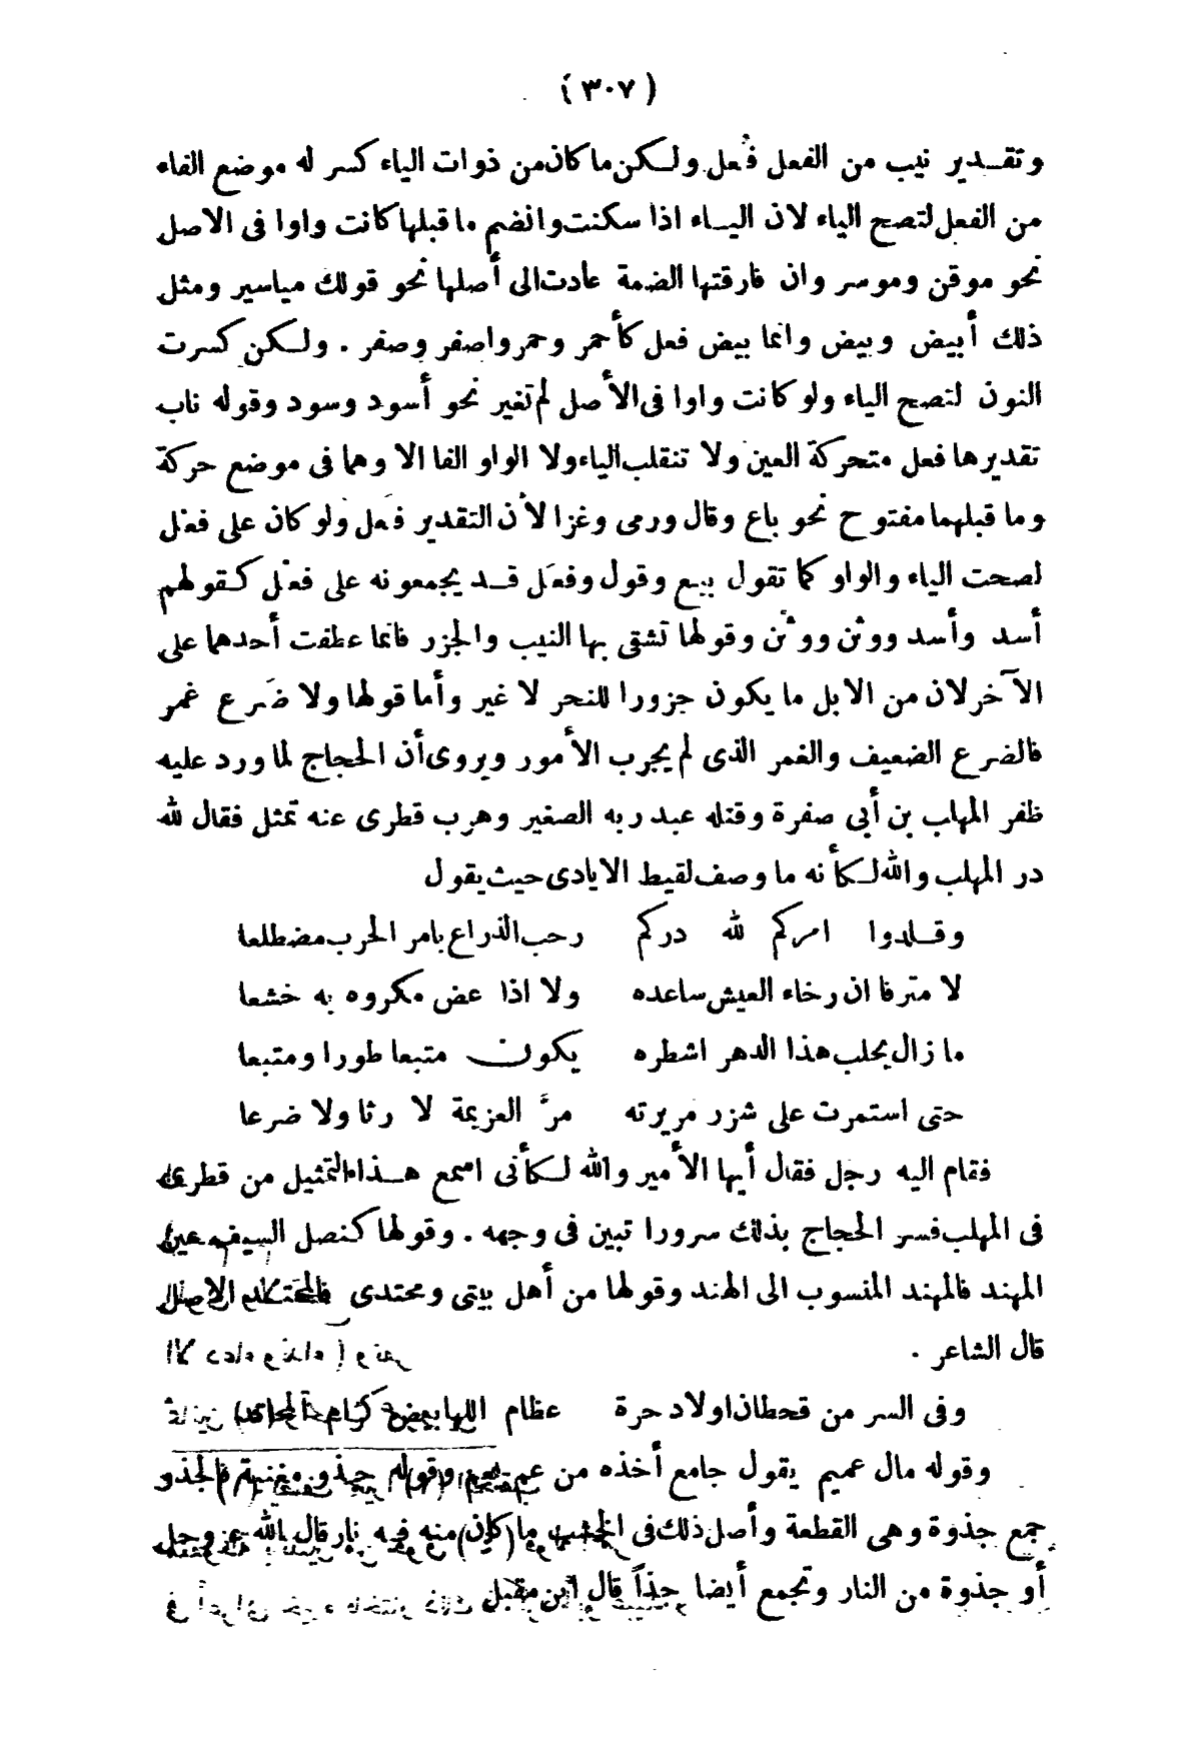 (٣٠٧)
وتقدير نيب من الفعل فُعل ولكن ما كان من ذوات الياء كسر له موضع الفاء
من الفعل لتصح الياء لان الياء اذا سكنت وانضم ما قبلها كانت واوا فى الاصل
نحو موقن وموسر وان فارقتها الضمة عادت الى أصلها نحو قولك مياسير ومثل
ذلك أبيض وبيض وانما بيض فعل كأحمر وحمر واصفر وصفر . ولكن كسرت
النون لتصح الياء ولو كانت واوا فى الأصل لم تغير نحو أسود وسود وقوله ناب
تقديرها فعل متحركة العين ولا تنقلب الياء ولا الواو الفا الا وهما فى موضع حركة
وما قبلهما مفتوح نحو باع وقال ورمى وغزا لأن التقدير فَعل ولو كان على فعْل
لصحت الياء والواو كما تقول بيع وقول وفعَل قد يجمعونه على فعْل كقولهم
أسد وأسد ووثن ووثْن وقولها تشقى بها النيب والجزر فانما عطفت أحدهما على
الآخر لان من الابل ما يكون جزورا للنحر لا غير وأما قولها ولا ضَرع غمر
فالضرع الضعيف والغمر الذى لم يجرب الأمور ويروى أن الحجاج لما ورد عليه
ظفر المهلب بن أبى صفرة وقتله عبد ربه الصغير وهرب قطرى عنه تمثل فقال لله
در المهلب والله لكأنه ما وصف لقيط الايادى حيث يقول
وقلدوا امركم لله دركم رحب الذراع بامر الحرب مضطلعا
لا مترفا ان رخاء العيش ساعده ولا اذا عض مكروه به خشعا
ما زال يحلب هذا الدهر اشطره يكون متبعا طورا ومتبعا
حتى استمرت على شزر مريرته مرّ العزيمة لا رثا ولا ضرعا
فقام اليه رجل فقال أيها الأمير والله لكأنى اسمع هذا التمثيل من قطرى
فى المهلب فسر الحجاج بذلك سرورا تبين فى وجهه . وقولها كنصل السيف عين
المهند فالمهند المنسوب الى الهند وقولها من أهل بيتى ومحتدى فالمحتد الاصل
قال الشاعر .
وفى السر من قحطان اولاد حرة عظام اللها بيض كرام المحاتد
وقوله مال عميم يقول جامع أخذه من عم يعم وقوله جذو مغنية فالجذو
جمع جذوة وهى القطعة وأصل ذلك فى الخشب ما كان منه فيه نار قال الله عز وجل
أو جذوة من النار وتجمع أيضا جذاً قال ابن مقبل